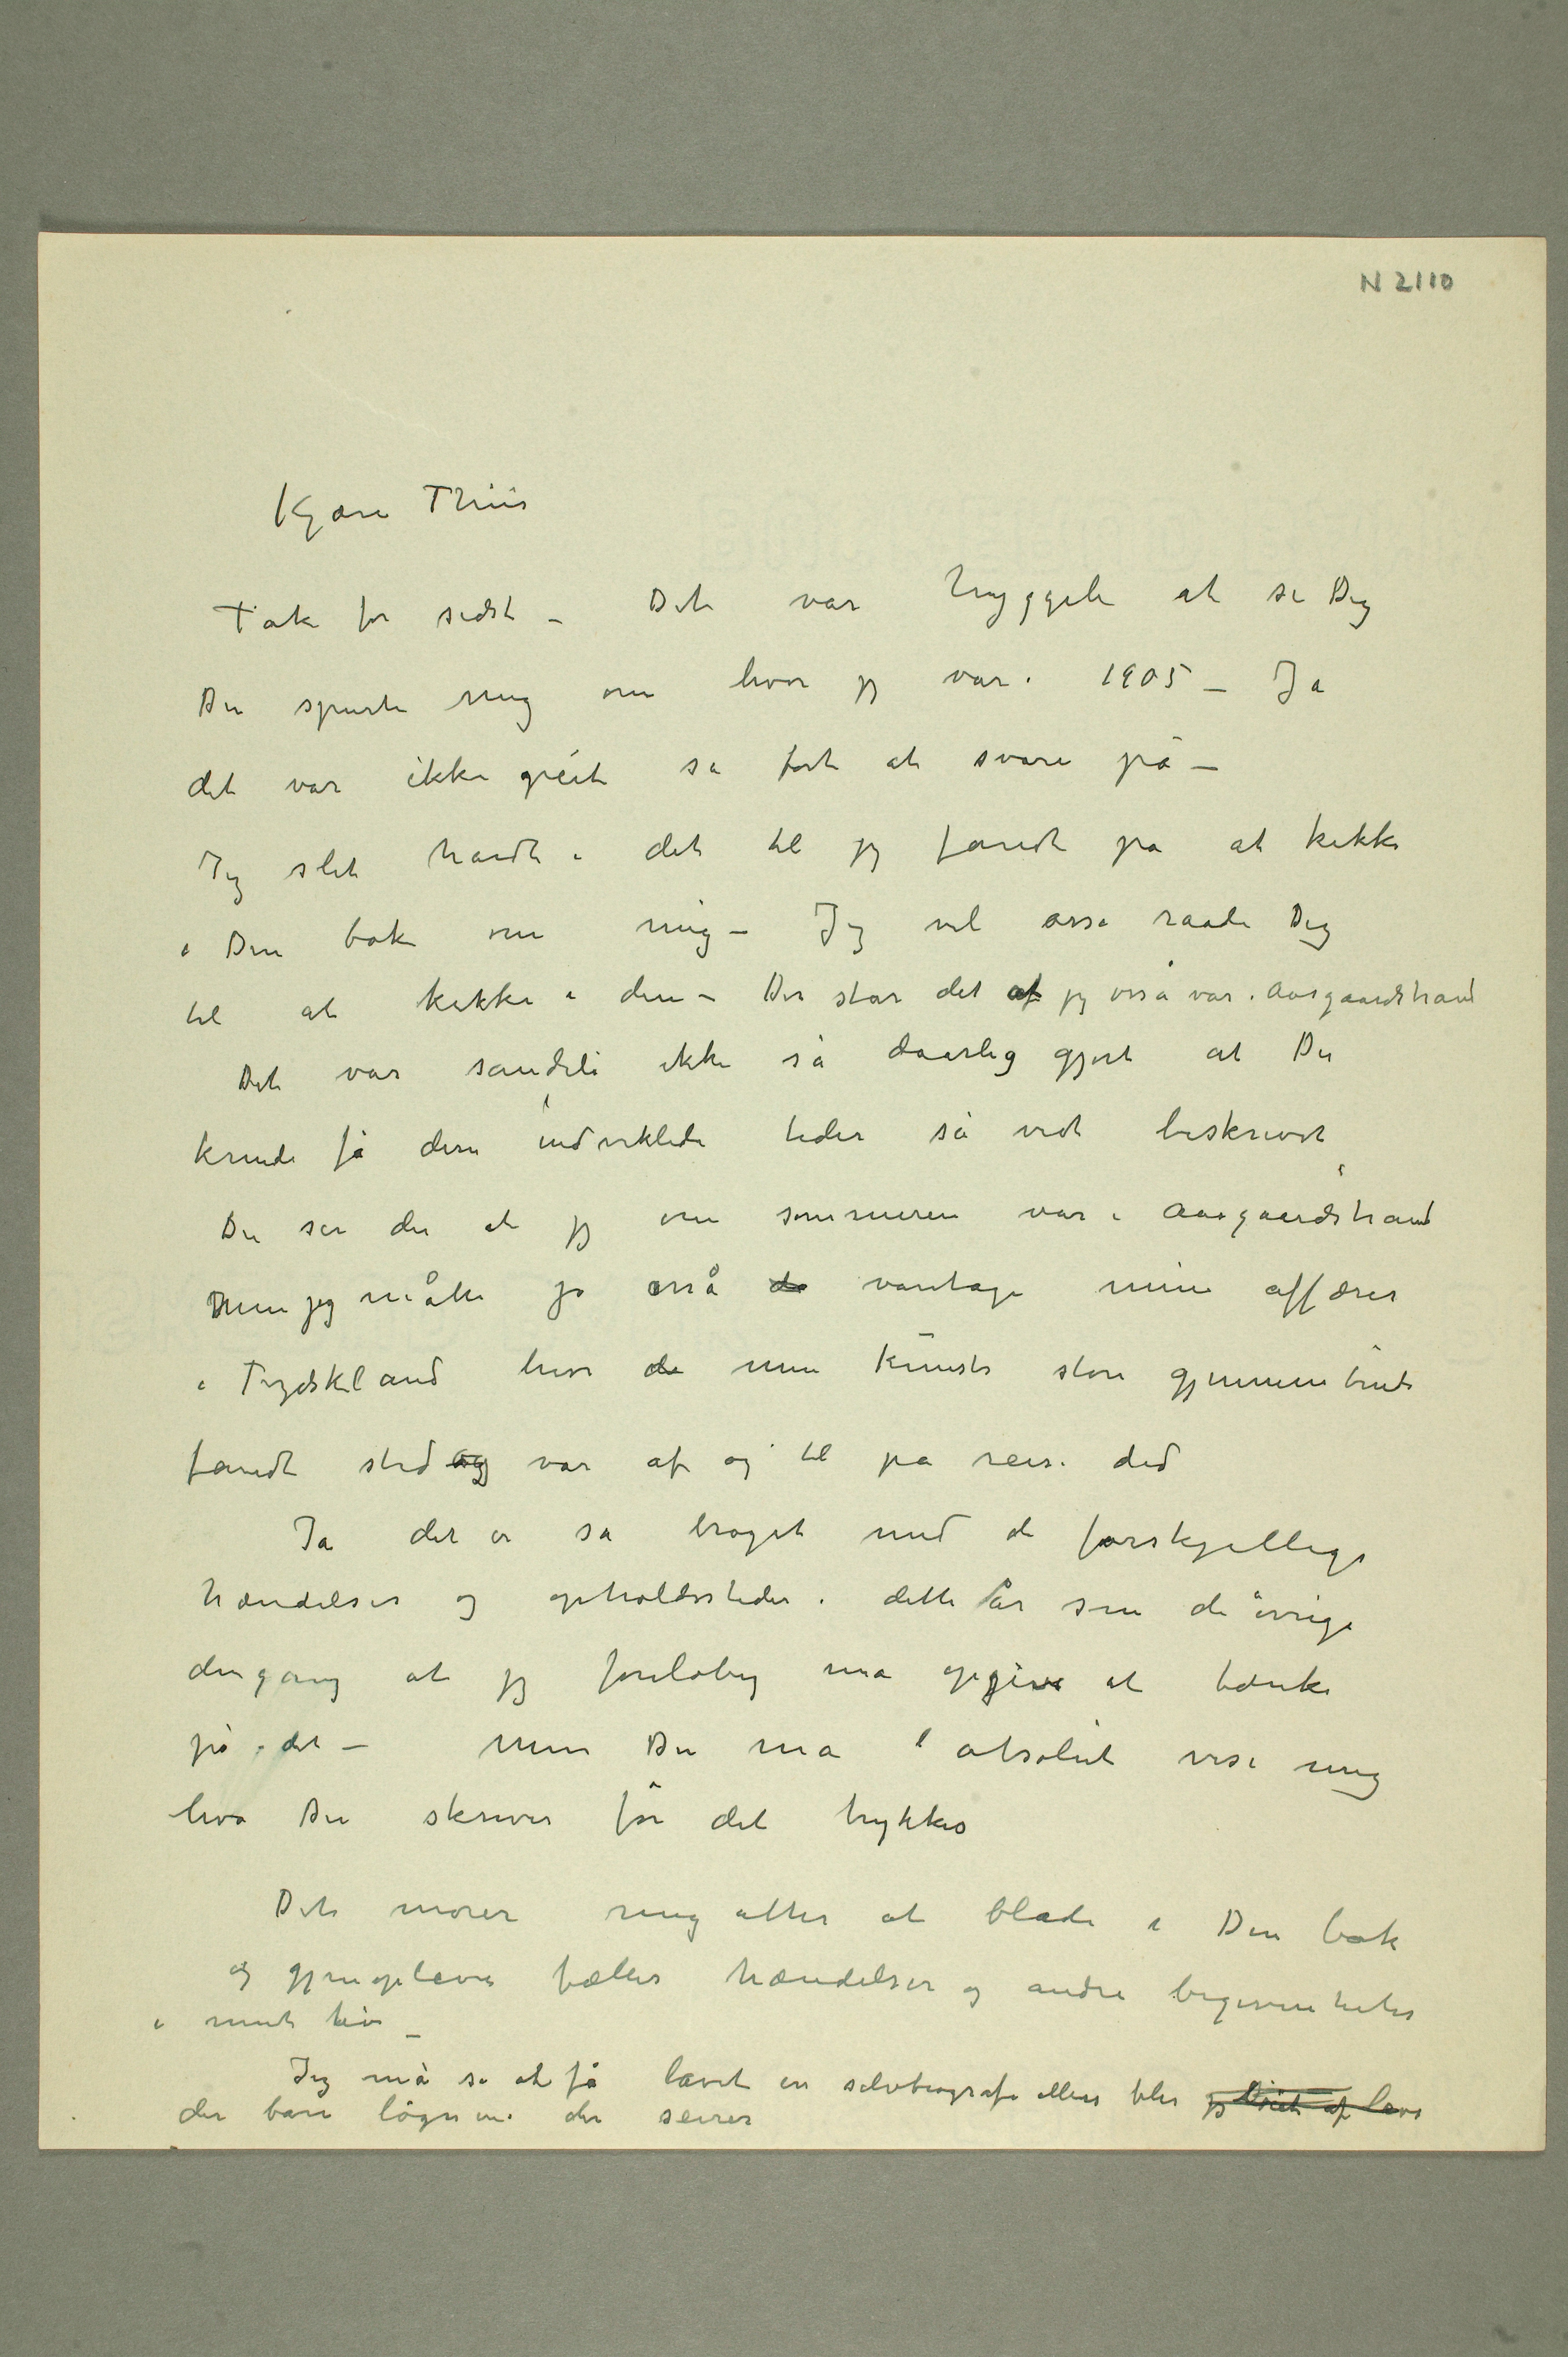 N 2110
Kjære Thiis
Tak for sidst – Det var hyggeli at se Dig
Du spurte mig om hvor jeg var i 1905 – Ja
det var ikke greit så fort at svare på –
Jeg slet hardt i det til jeg fandt på at kikke
i Din bok om mig – Jeg vil osså raade Dig
til at kikke i den – Der står det at jeg osså var i Aasgaardstrand
Det var sandeli ikke så daarlig gjort at Du
kunde få disse indviklede tider så vidt beskrivet
Du ser der at jeg om sommeren var i Aasgaardstrand
Men jeg måtte jo osså da varetage mine affærer
i Tydskland hvor da min kunsts store gjennembrud
fandt sted og var af og til på reise did
Ja det er så broget med de forskjellige
hændelser og opholdssteder i dette år som de øvrige
dengang at jeg foreløbig må opgive at tænke
på det – Men Du må absolut vise mig
hva Du skriver før det trykkes
Det morer mig atter at blade i Din bok
og gjenopleve fælles hændelser og andre begivenheter
i mit liv –
Jeg må se at få lavet en selvbiografi ellers blir jeg
der bare løgnene der seirer